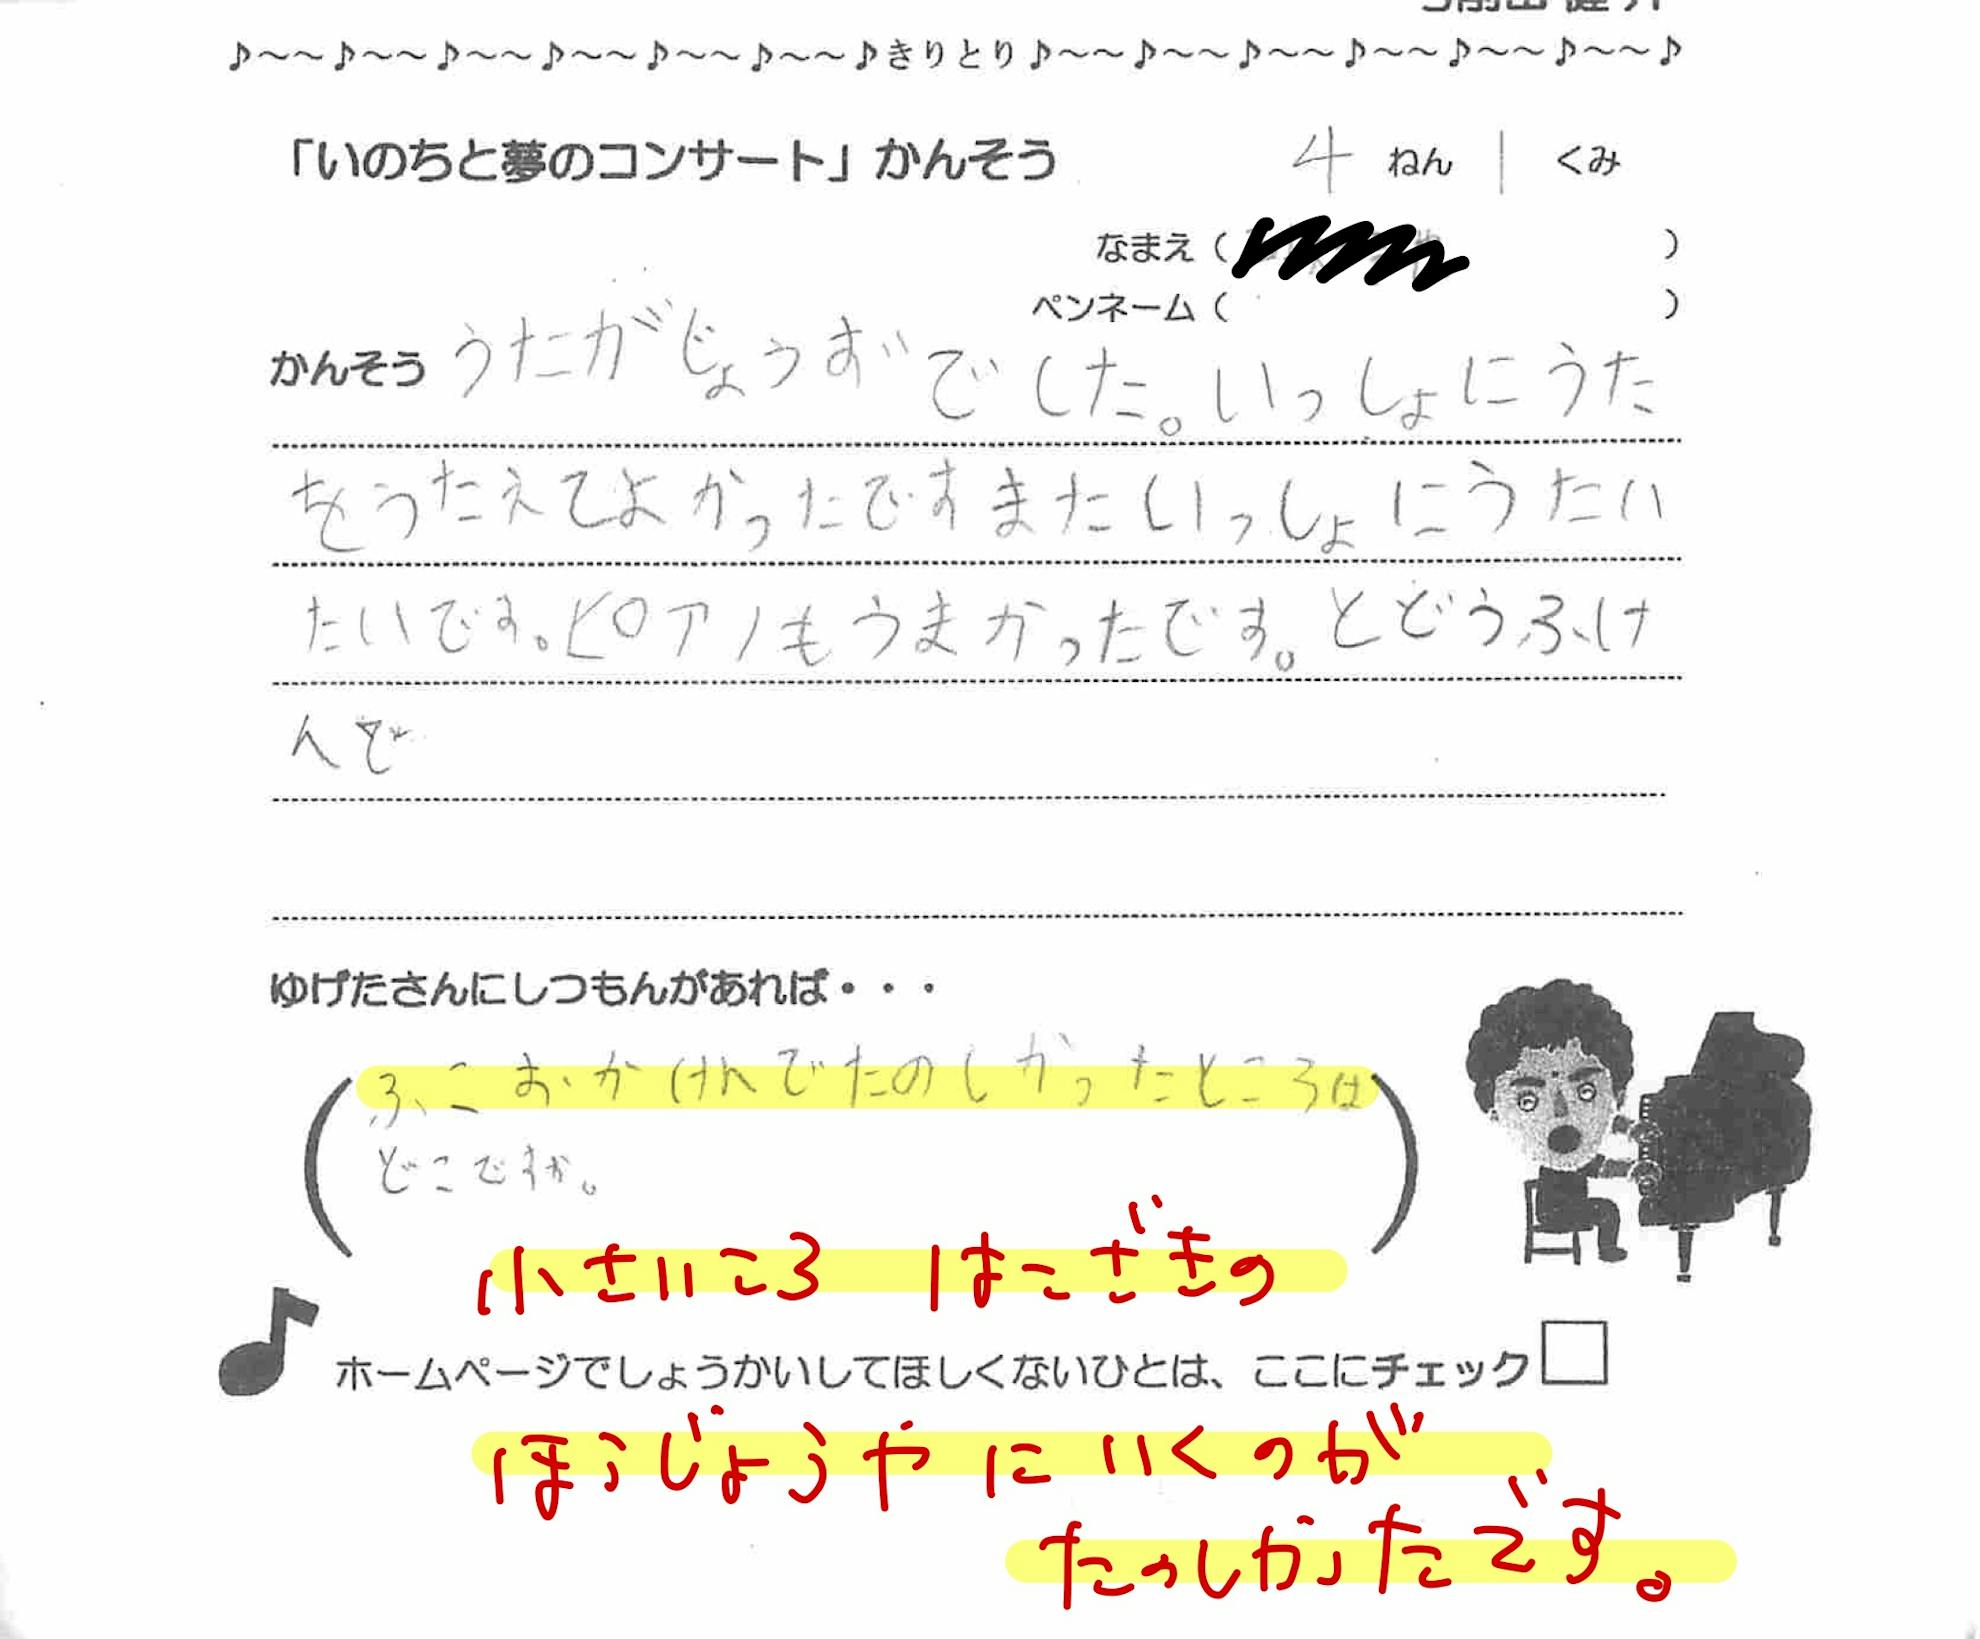 ♪～～♪～～♪～～♪～～♪～～♪～～♪きりとり♪～～♪～～♪～～♪～～♪～～♪～～♪
「いのちと夢のコンサート」かんそう 4 ねん 1 くみ
なまえ（ ）
ペンネーム（ ）
かんそう うたがじょうずでした。いっしょにうた
をうたえてよかったですまたいっしょにうたい
たいです。ピアノもうまかったです。とどうふけ
んで
ゆげたさんにしつもんがあれば・・・
（ふこおかけんでたのしかったところは
どこですか。）
小さいころ はこざきの
ホームページでしょうかいしてほしくないひとは、ここにチェック□
ほうじょうやにいくのが
たのしかったです。